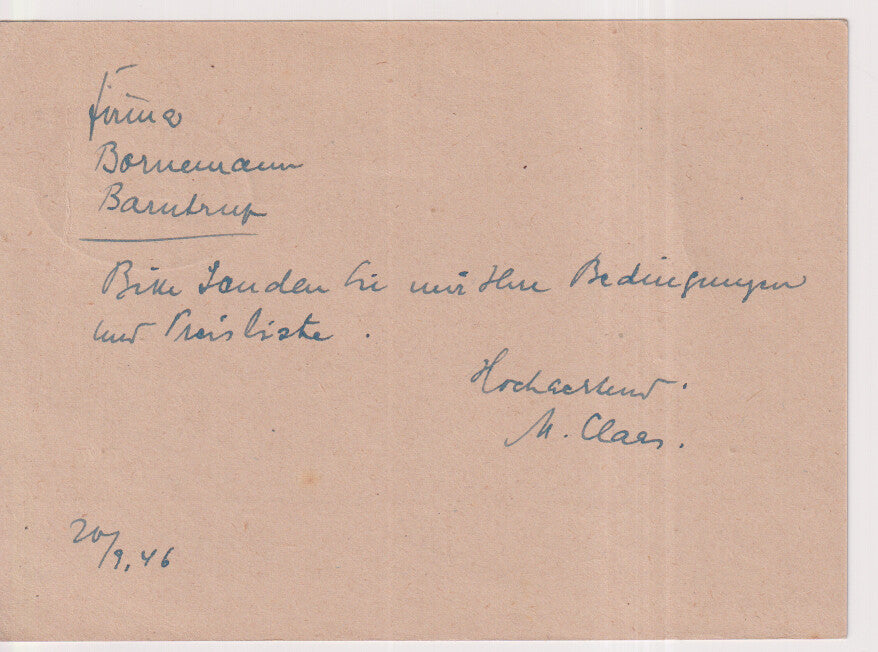 Firma
Bornemann
Barntrup
Bitte senden Sie mir Ihre Bedingungen
und Preisliste .
Hochachtend .
M. Claas.
20/9. 46